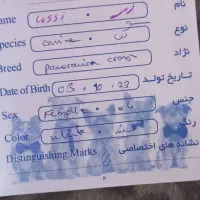 ame Lossi نام
pecies canine نوع
Breed pomeranian cross نژاد
Date of Birth 03 . 10 . 23 تاریخ تولد
Sex Female ماده جنس
Color رنگ
Distinguishing Marks نشانه های اختصاصی